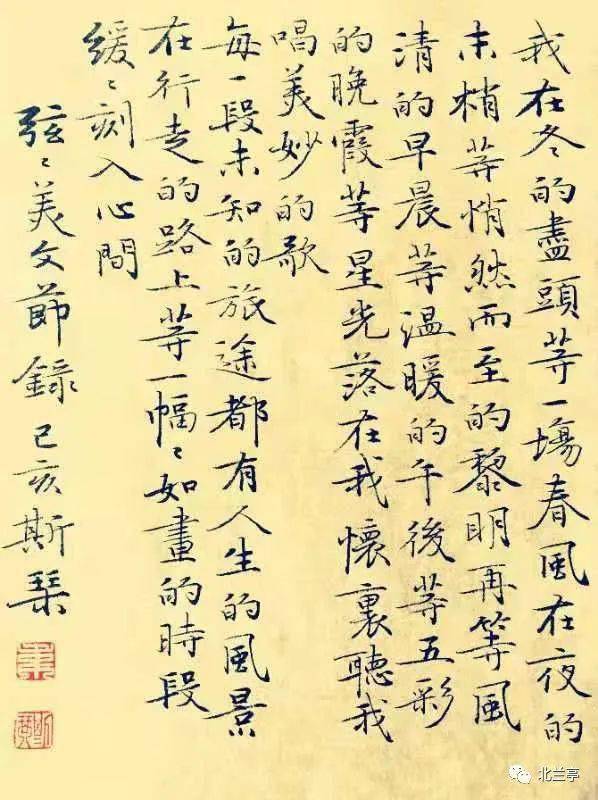 我在冬的盡頭等一場春風在夜的
末梢等悄然而至的黎明再等風
清的早晨等溫暖的午後等五彩
的晚霞等星光落在我懷裏聽我
唱美妙的歌
每一段未知的旅途都有人生的風景
在行走的路上等一幅〻如畫的時段
緩〻刻入心間
弦〻美文節錄己亥斯琹
北兰亭